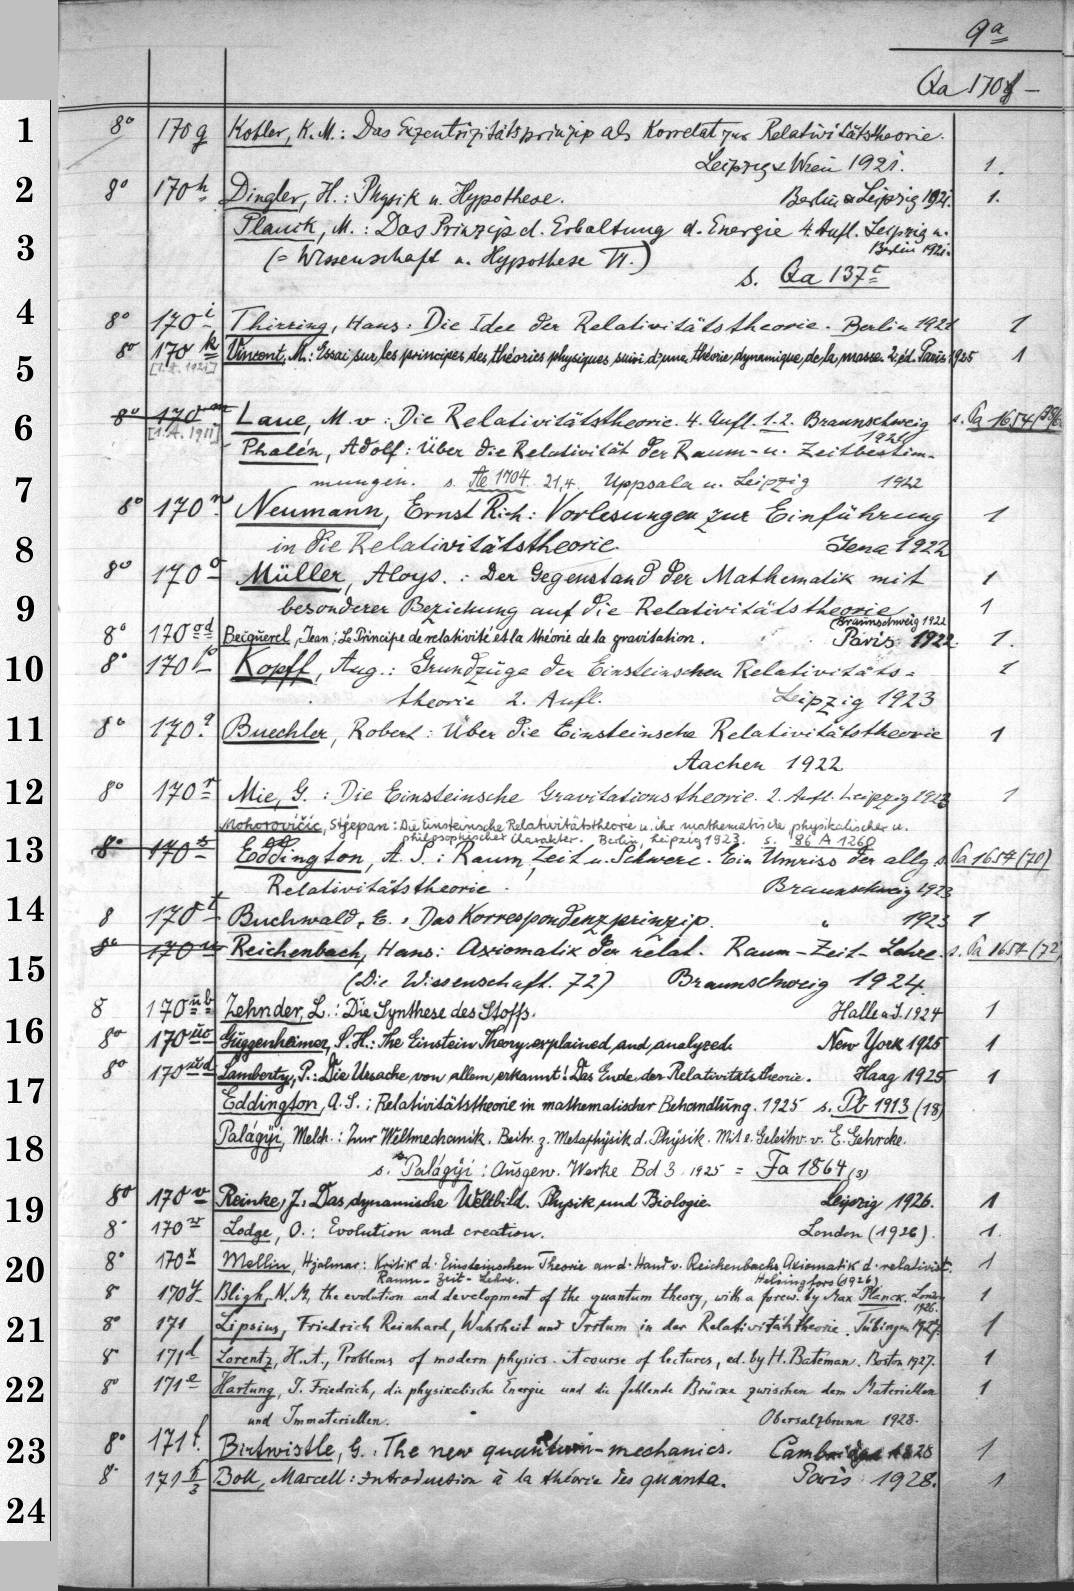 Qa
Qa 170f –
1 8° 170 g Kobler, K. M.: Das Exzentrizitätsprinzip als Korrelat zur Relativitätstheorie.
Leipzig u Wien 1921. 1.
2 8° 170 h Dingler, H.: Physik u. Hypothese. Berlin u Leipzig 1921. 1.
Planck, M.: Das Prinzip d. Erhaltung d. Energie 4. Aufl. Leipzig u.
Berlin 1921.
3 (= Wissenschaft u. Hypothese VI.)
s. Qa 137c
4 8° 170 i Thirring, Hans: Die Idee der Relativitätstheorie. Berlin 1921 1
8° 170 k Vincent, M.: Essai sur les principes des théories physiques suivi d'une théorie dynamique de la masse 2. éd. Paris 1925 1
5 [1. A. 1921]
6 8° 170 m Laue, M. v.: Die Relativitätstheorie. 4. Aufl. 1.2. Braunschweig s. Pa 1654
[1. A. 1911] 1921
Phalén, Adolf: Über die Relativität der Raum- u. Zeitbestim-
7 mungen. s. Ae 1704. 21,4. Uppsala u. Leipzig 1922
8° 170 n Neumann, Ernst Rich: Vorlesungen zur Einführung 1
8 in die Relativitätstheorie. Jena 1922
8° 170 o Müller, Aloys.: Der Gegenstand der Mathematik mit 1
9 besonderer Beziehung auf die Relativitätstheorie 1
Braunschweig 1922
8° 170 od Becquerel, Jean: Le Principe de relativité et la théorie de la gravitation. Paris 1922. 1.
10 8° 170 p Kopff, Aug.: Grundzüge der Einsteinschen Relativitäts- 1
theorie 2. Aufl. Leipzig 1923
11 8° 170 q Buechler, Robert: Über die Einsteinsche Relativitätstheorie 1
Aachen 1922
12 8° 170 r Mie, G.: Die Einsteinsche Gravitationstheorie. 2. Aufl. Leipzig 1923 1
Mohorovičić, Stjepan: Die Einsteinsche Relativitätstheorie u. ihr mathematischer physikalischer u.
philosophischer Charakter. Berlin, Leipzig 1923. s. 86 A 1268
13 8° 170 s Eddington, A. S.: Raum, Zeit u. Schwere. Ein Umriss der allg. s. Pa 1654 (70)
Relativitätstheorie. Braunschweig 1923
14 8 170 t Buchwald, E.: Das Korrespondenzprinzip. " 1923 1
8° 170 u Reichenbach, Hans: Axiomatik der relat. Raum-Zeit-Lehre. s. Pa 1654 (72)
15 (Die Wissenschaft. 72) Braunschweig 1924.
8 170 ub Zehnder, L.: Die Synthese des Stoffs. Halle a. S. 1924 1
16 8° 170 uc Guggenheimer, S. H.: The Einstein Theory explained and analyzed. New York 1925 1
8° 170 ud Lamberty, P.: Die Ursache von allem erkannt! Das Ende der Relativitätstheorie. Haag 1925 1
17 Eddington, A. S.: Relativitätstheorie in mathematischer Behandlung. 1925 s. Pb 1913 (18)
Palágyi, Melch.: Zur Weltmechanik. Beitr. z. Metaphysik d. Physik. Mit e. Geleitw. v. E. Gehrcke.
18 s. Palágyi: Ausgew. Werke Bd 3 1925 = Fa 1864 (3)
19 8° 170 v Reinke, J.: Das dynamische Weltbild. Physik und Biologie. Leipzig 1926. 1
8° 170 w Lodge, O.: Evolution and creation. London (1926). 1.
20 8° 170 x Mellin, Hjalmar: Kritik d. Einsteinschen Theorie an d. Hand v. Reichenbachs Axiomatik d. relativist. 1
Raum-Zeit-Lehre. Helsingfors (1926)
8° 170 y Bligh, N. M, the evolution and development of the quantum theory, with a forew. by Max Planck. London 1
1926.
21 8° 171 Lipsius, Friedrich Reinhard, Wahrheit und Irrtum in der Relativitätstheorie. Tübingen 1927. 1
8° 171 d Lorentz, H. A., Problems of modern physics. A course of lectures, ed. by H. Bateman. Boston 1927. 1
22 8° 171 e Hartung, J. Friedrich, die physikalische Energie und die fehlende Brücke zwischen dem Materiellen 1
und Immateriellen. Obersalzbrunn 1928.
23 8° 171 f. Birtwistle, G.: The new quantum-mechanics. Cambridge 1928 1
8° 171 f 3 Boll, Marcell: Introduction à la théorie des quanta. Paris 1928. 1
24